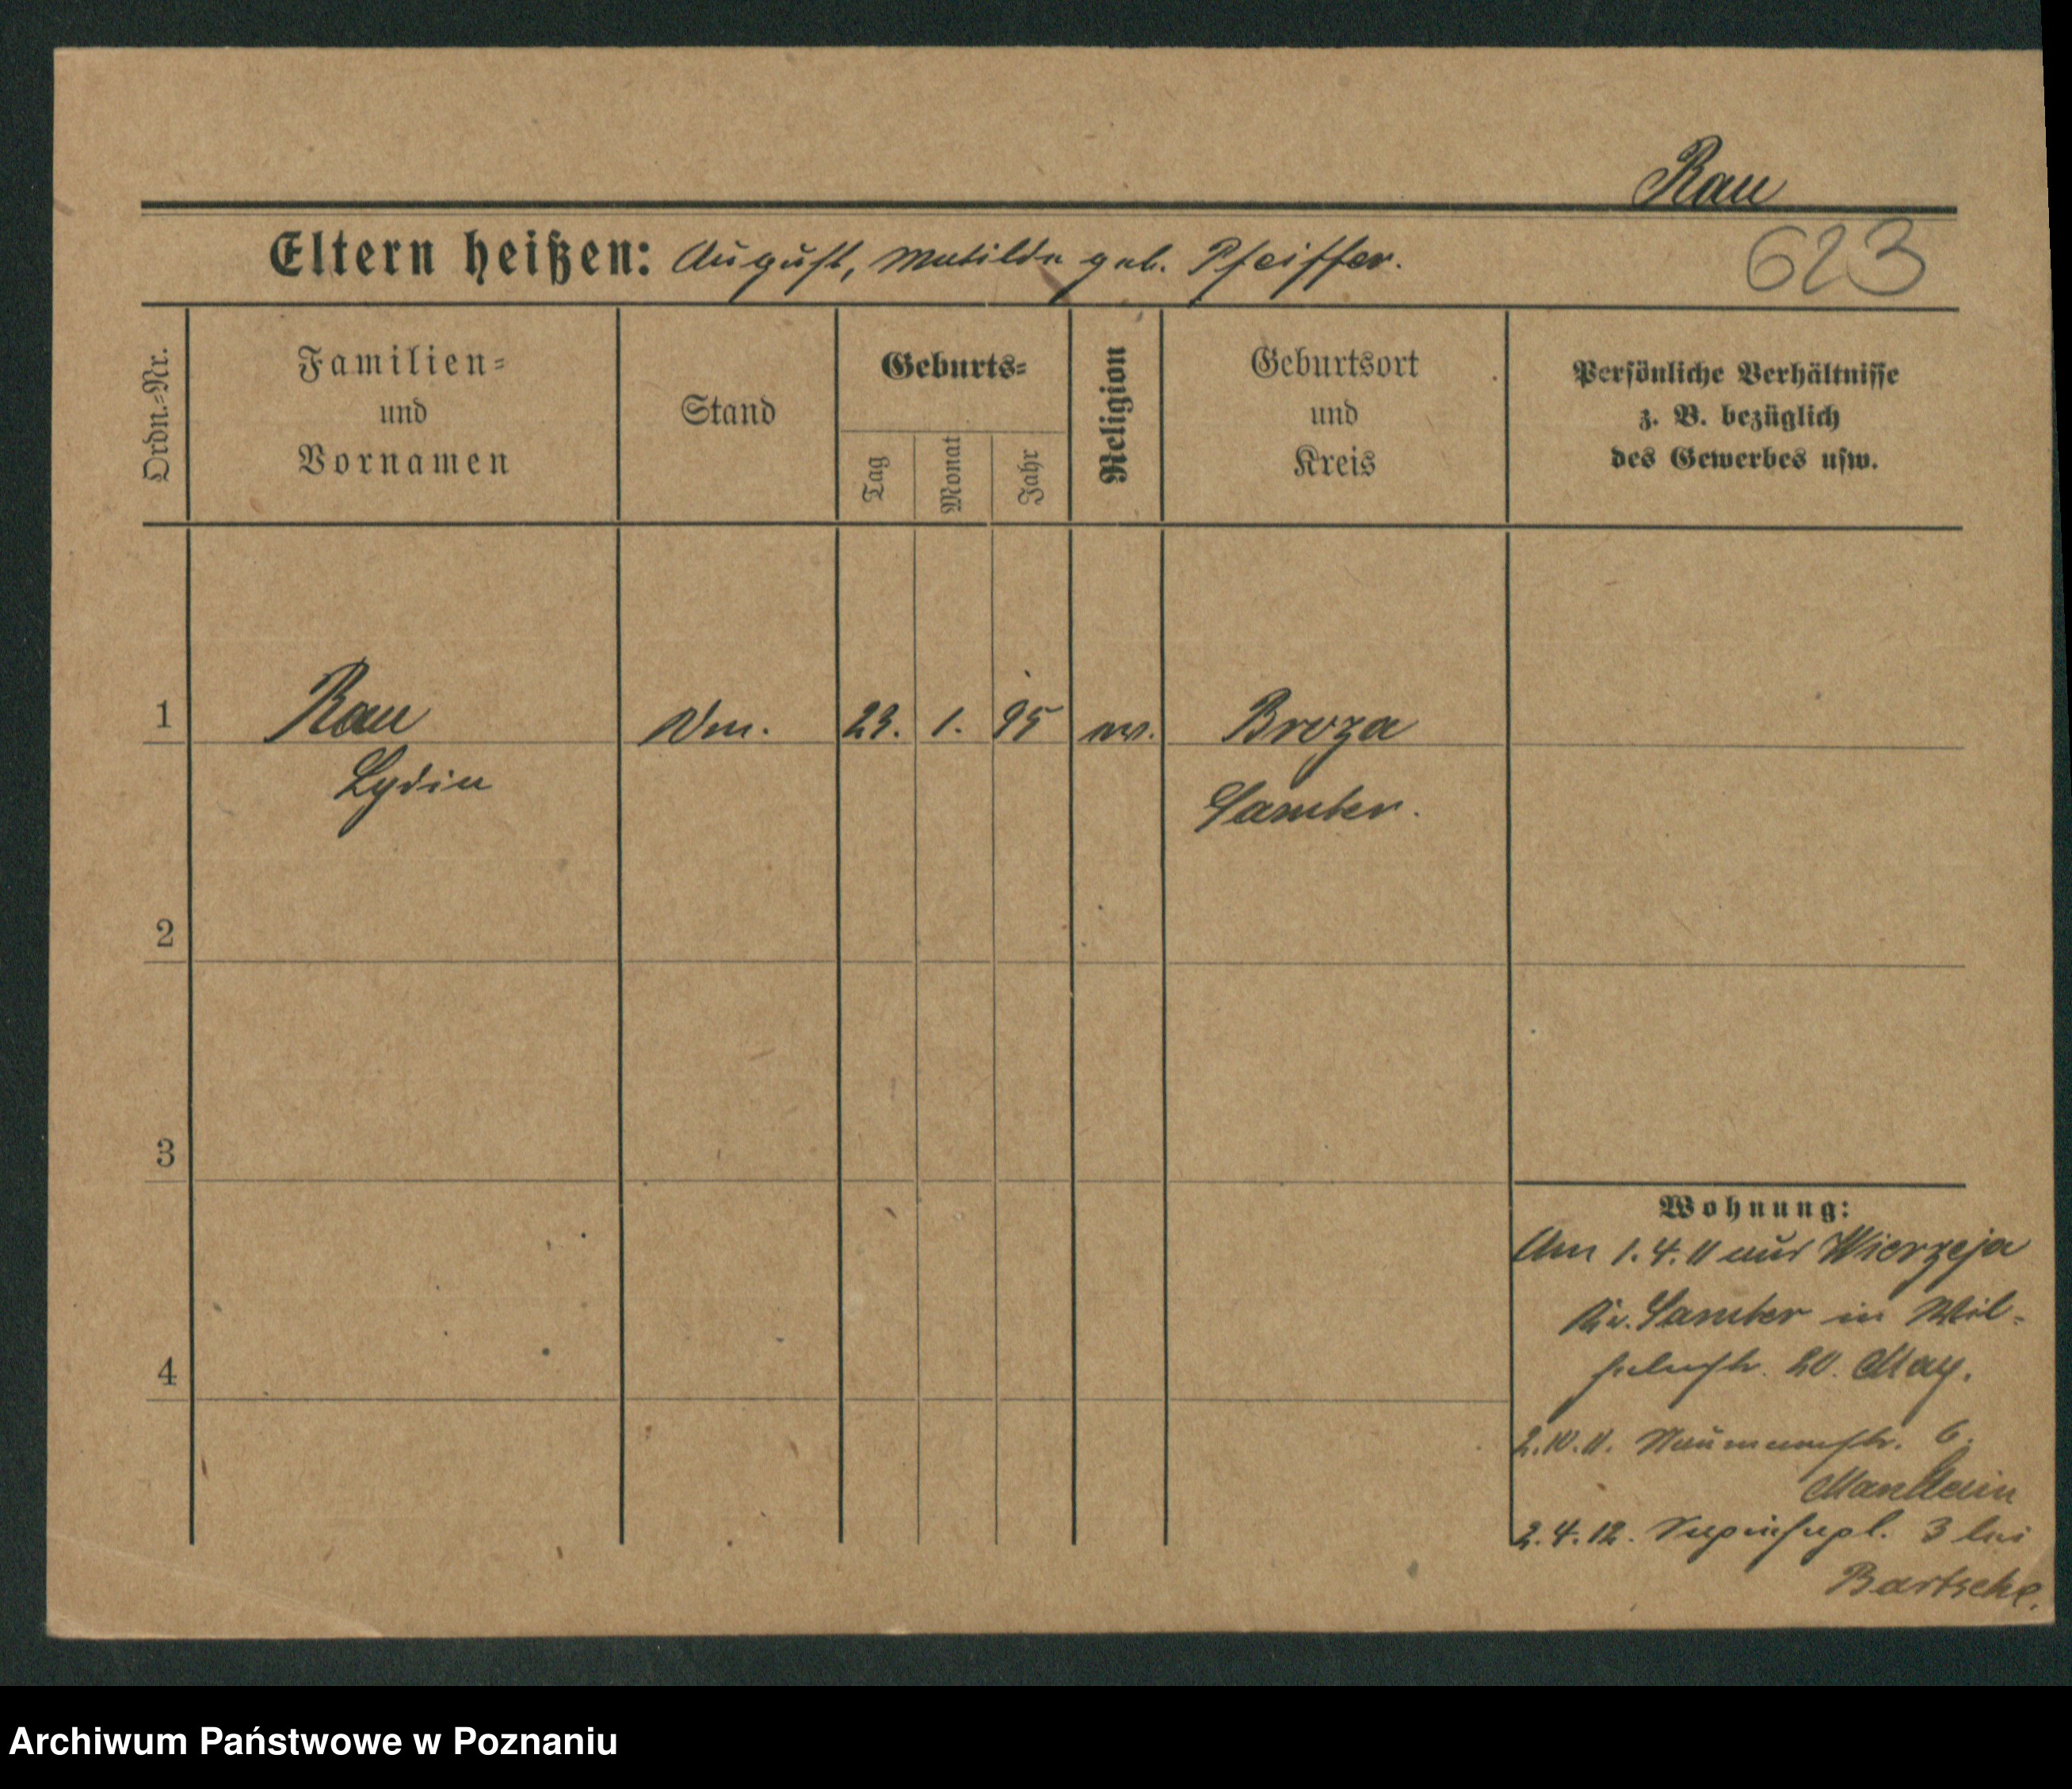 Rau
Eltern heißen: August, Matilde geb. Pfeiffer.
623
Ordn.-Nr.
Familien-
und
Vornamen
Stand
Geburts-
Tag
Monat
Jahr
Religion
Geburtsort
und
Kreis
Persönliche Verhältnisse
z. B. bezüglich
des Gewerbes usw.
1 Rau 23. 1. 95 ev. Broza
Lydia Samter.
2
3
4
Wohnung:
Am 1.4.11 aus Wierzeja
Kr. Samter in Wil-
helmstr. 20. May.
2.10.11. Naumannstr. 6.
2.4.12. 3 bei
Bartsche.
Archiwum Państwowe w Poznaniu